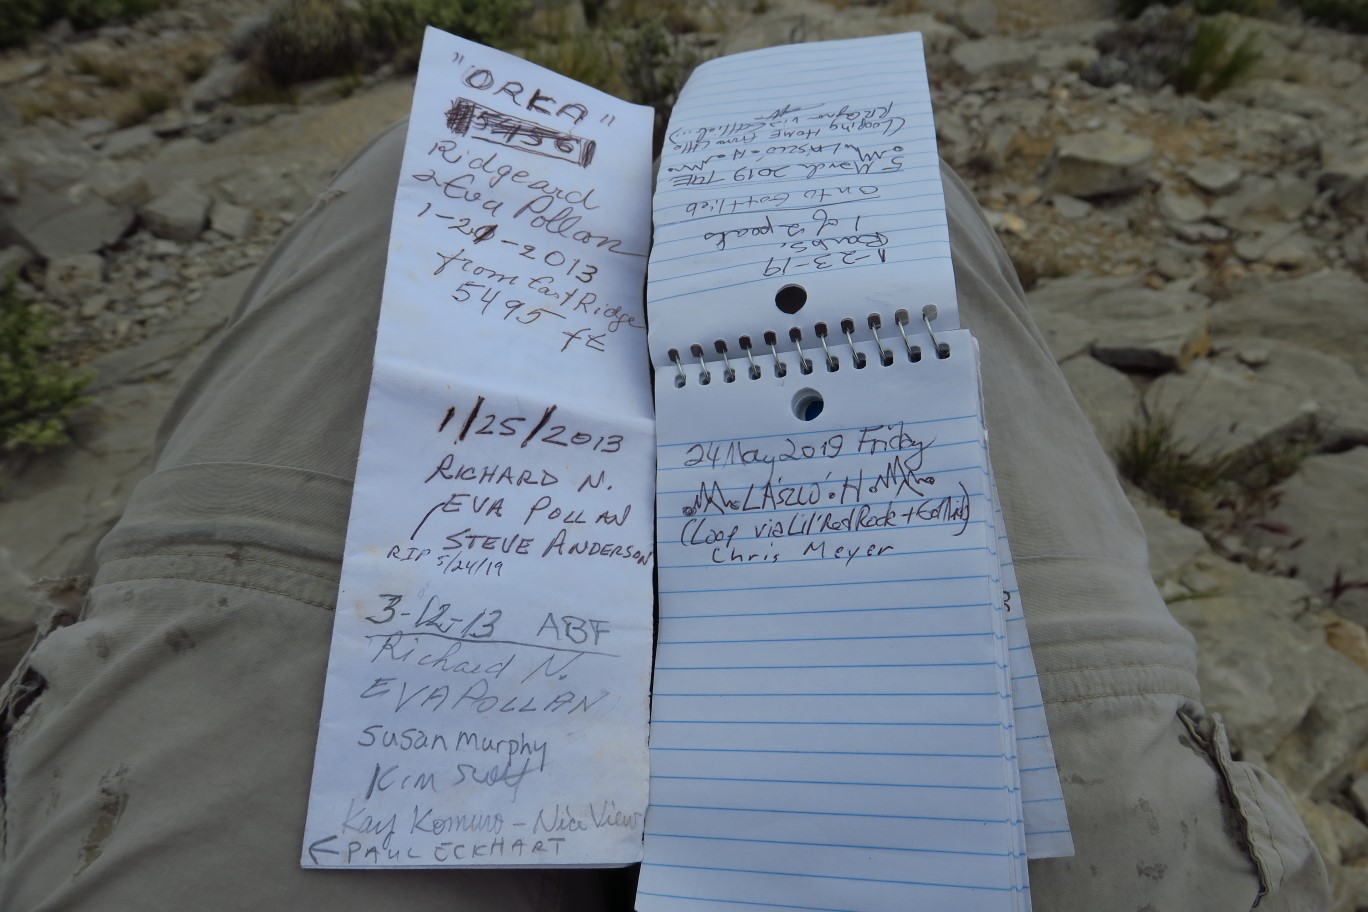 "ORKA"
5456
Ridgeard
& Eva Pollan
1-21-2013
from East Ridge
5495
ft
1/25/2013
RICHARD N.
EVA POLLAN
STEVE ANDERSON
RIP 5/24/19
3-12-13 ABF
Richard N.
EVA POLLAN
Susan Murphy
Kim
Kay Komuro - Nice View
← PAUL ECKHART
1-23-19
Barbs.
1 of 2 peaks
onto Gottlieb
5 March 2019 TUE
LÁSZLÓ • H
(Looping Home from
via Gottlieb...)
24 May 2019 Friday
LÁSZLÓ • H
(Loop via Lil' Red Rock + Gottlieb)
Chris Meyer